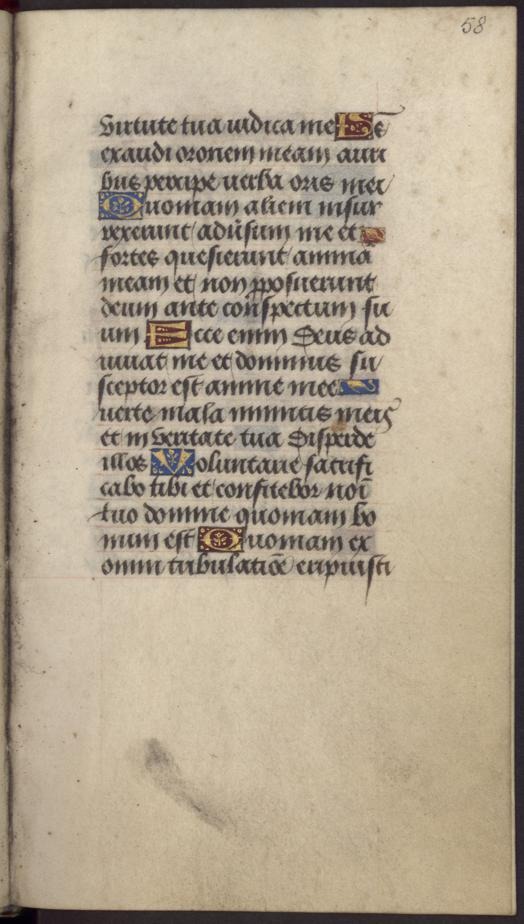 58
virtute tua iudica me De
exaudi oronem meam auri
bus percipe uerba oris mei
Quoniam alieni insur
rexerunt adūsum me et
fortes quesierunt animā
meam et non pposuerunt
deum ante conspectum su
um Ecce enim deus ad
iuuat me et dominus su
sceptor est anime mee A
uerte mala inimicis meis
et in veritate tua disperde
illos Voluntarie sacrifi
cabo tibi et confitebor noī
tuo domine quoniam bo
num est Quoniam ex
omni tribulatiōe eripuisti